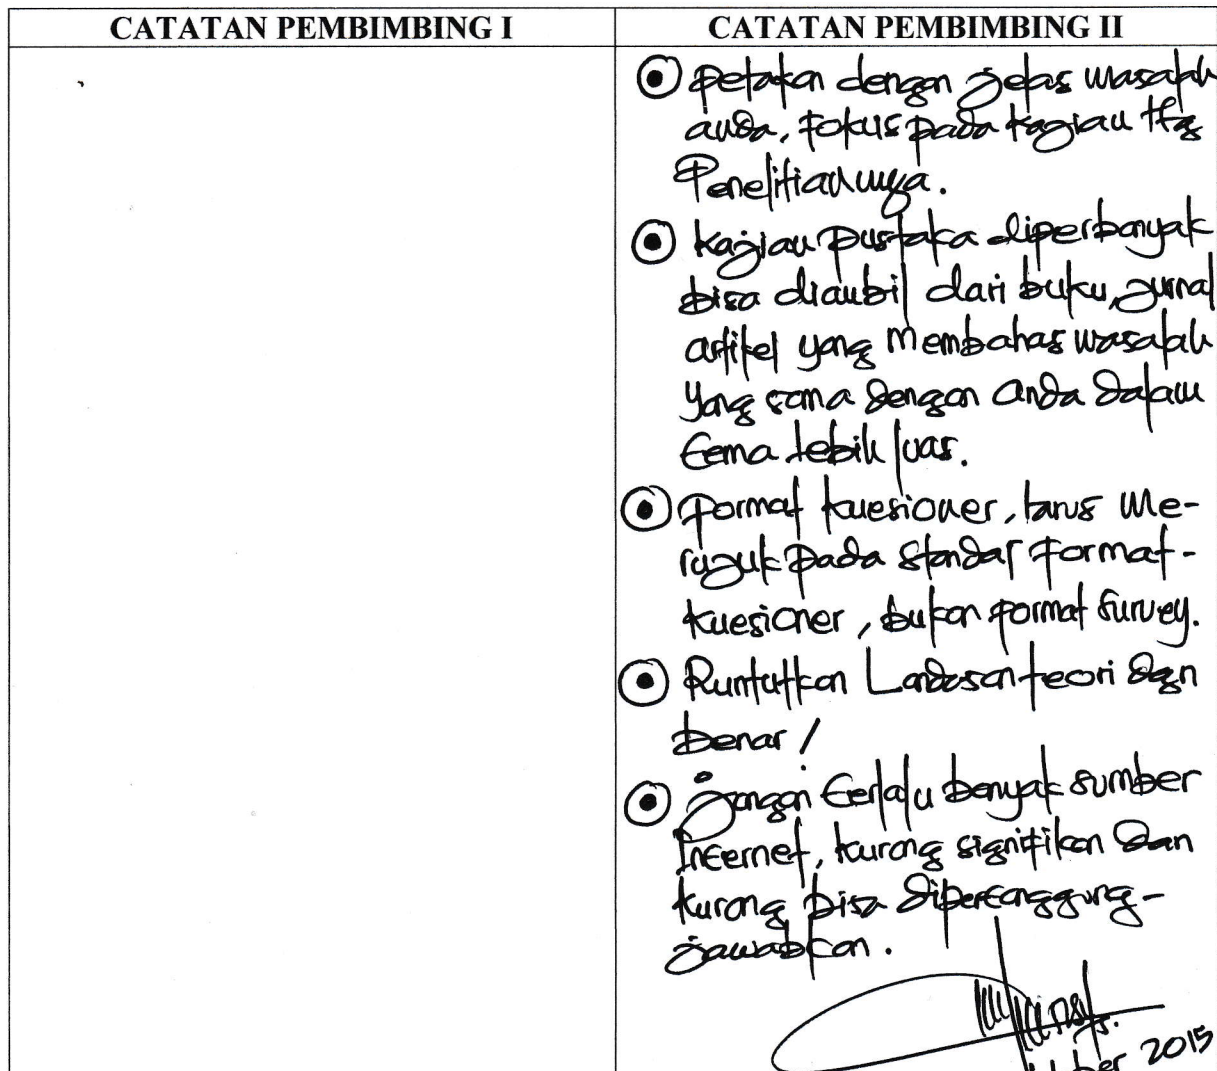 CATATAN PEMBIMBING I
CATATAN PEMBIMBING II
petakan dengan jelas masalah
anda, fokus pada kajian ttg
Penelitiannya.
Kajian pustaka diperbanyak
bisa diambil dari buku, jurnal
artikel yang membahas masalah
yang sama dengan anda dalam
tema lebih luas.
Format kuesioner, harus me-
rujuk pada standar format-
kuesioner, bukan format survey.
Runtutkan Landasan teori dgn
benar!
Jangan terlalu banyak sumber
Internet, kurang signifikan dan
kurang bisa dipertanggung-
jawabkan.
2015